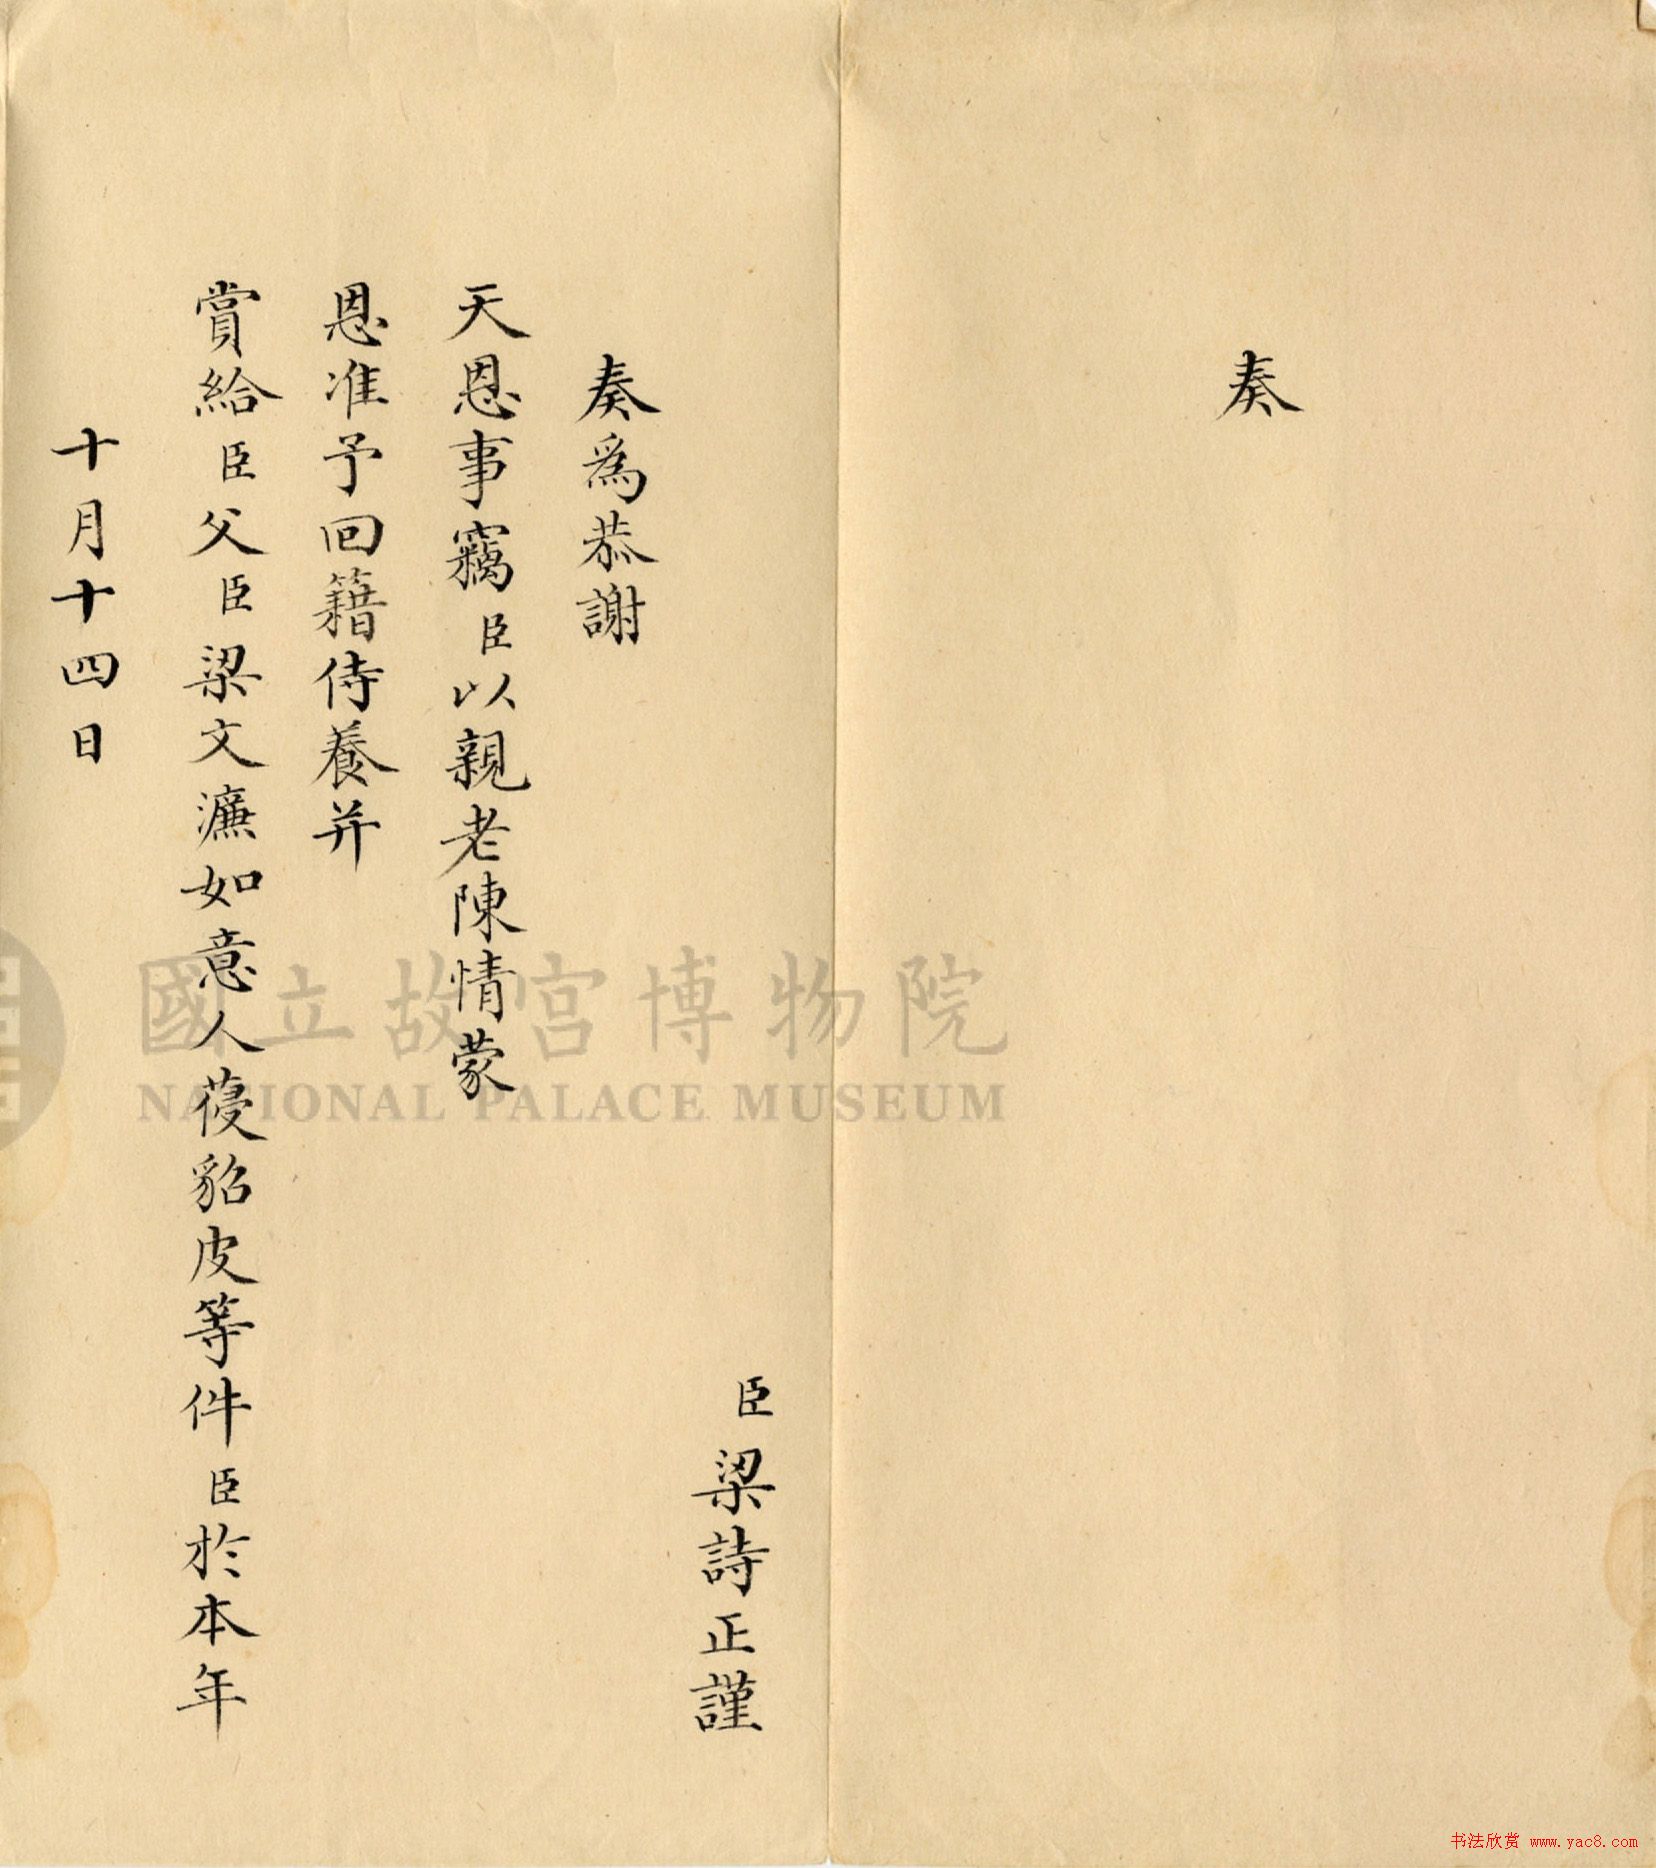 奏
臣梁詩正謹
奏爲恭謝
天恩事竊臣以親老陳情蒙
恩准予回籍侍養并
賞給臣父臣梁文濂如意人葠貂皮等件臣於本年
十月十四日
國立故宮博物院
NATIONAL PALACE MUSEUM
书法欣赏 www.yac8.com